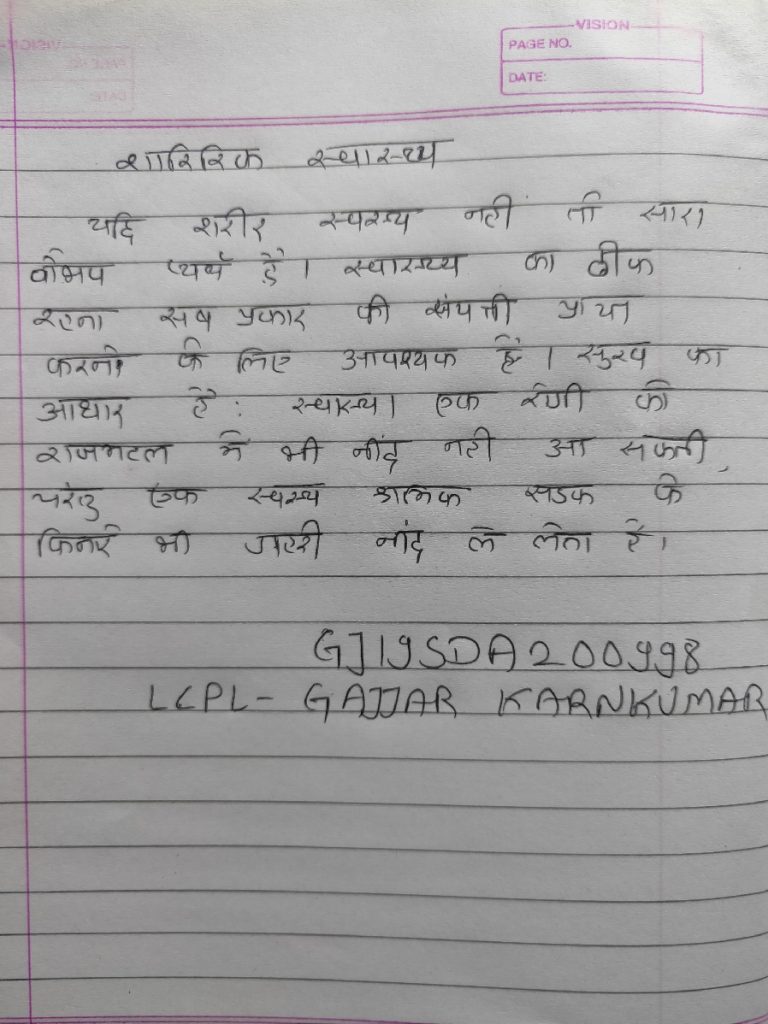 VISION
PAGE NO.
DATE:
शारिरिक स्वास्थ्य
यदि शरीर स्वस्थ्य नहीं तो सारा
वैभव व्यर्थ है । स्वास्थ्य का ठीक
रहना सब प्रकार की संपत्ती प्राप्त
करने के लिए आवश्यक है । सुख का
आधार है : स्वास्थ्य । एक रोगी को
राजमहल में भी नींद नही आ सकती,
परंतु एक स्वस्थ्य श्रमिक सडक के
किनारे भी गहरी नींद ले लेता है ।
GJ19SDA200998
LCPL - GAJJAR KARNKUMAR